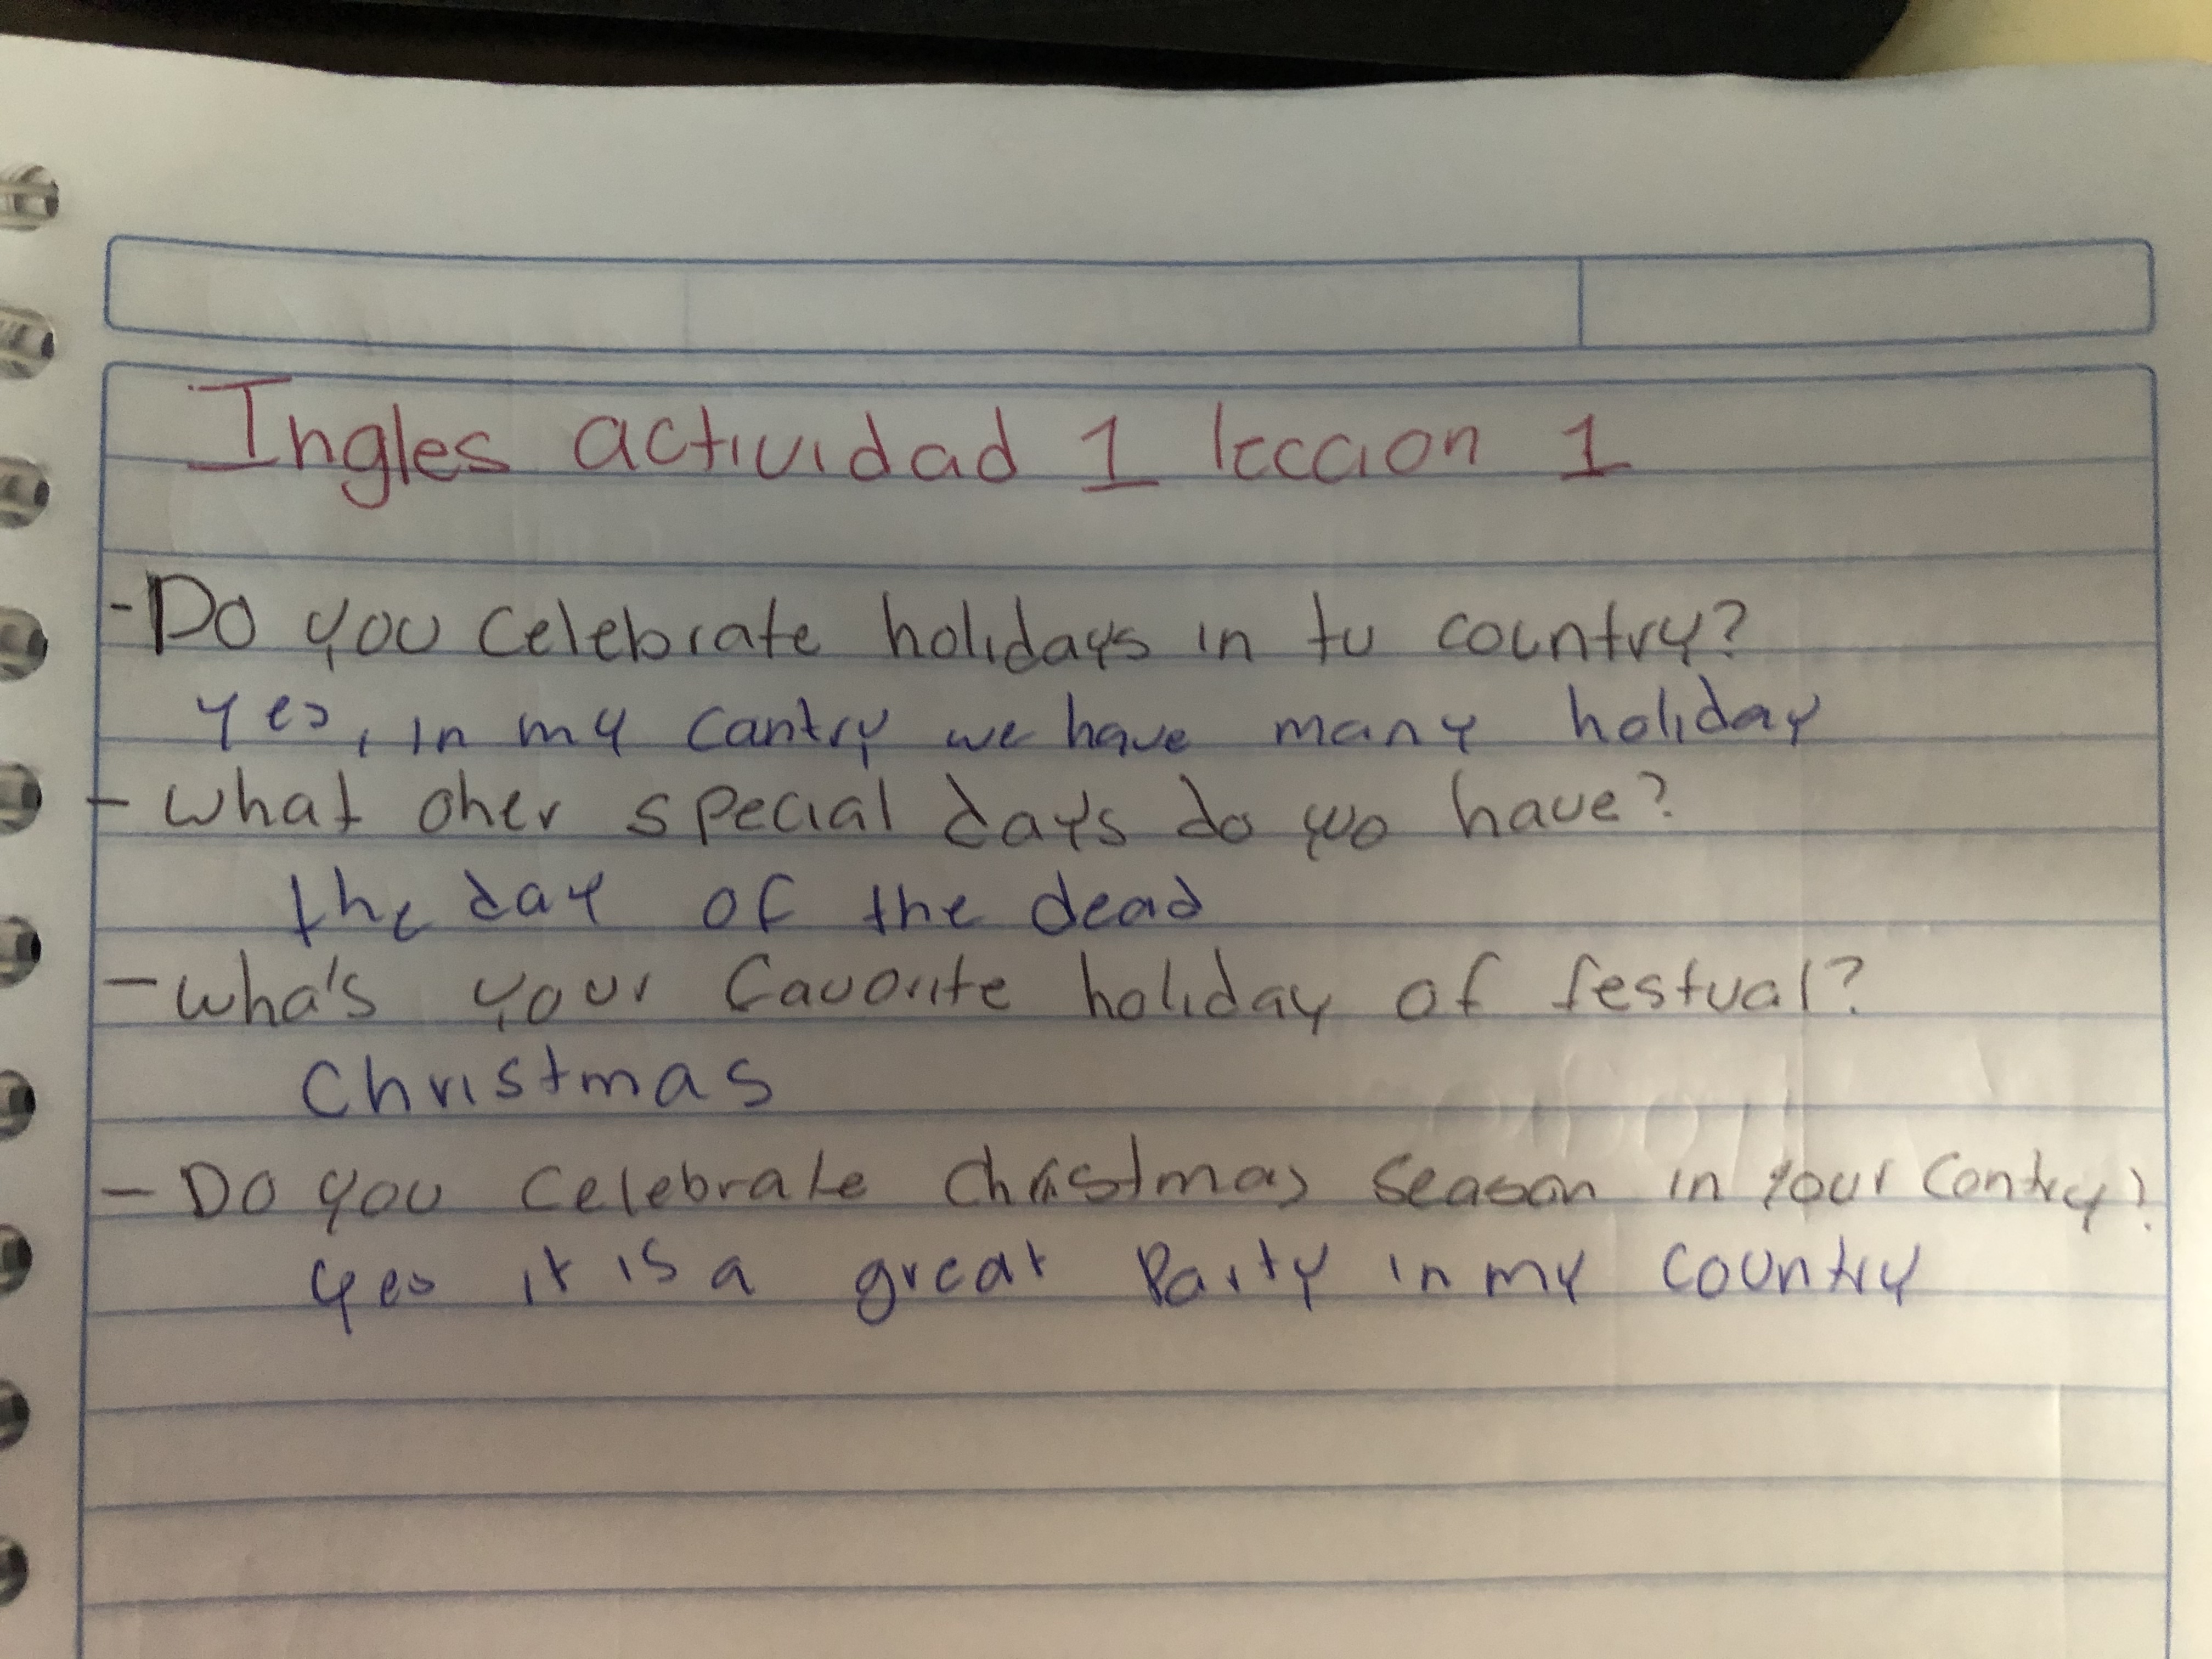 Ingles actividad 1 leccion 1
-Do you celebrate holidays in tu country?
Yes, in my cantry we have many holiday
- what oher special days do yuo have?
the day of the dead
- wha's your favorite holiday of festival?
Christmas
- Do you celebrate Christmas season in your Contry?
yes it is a great Party in my country